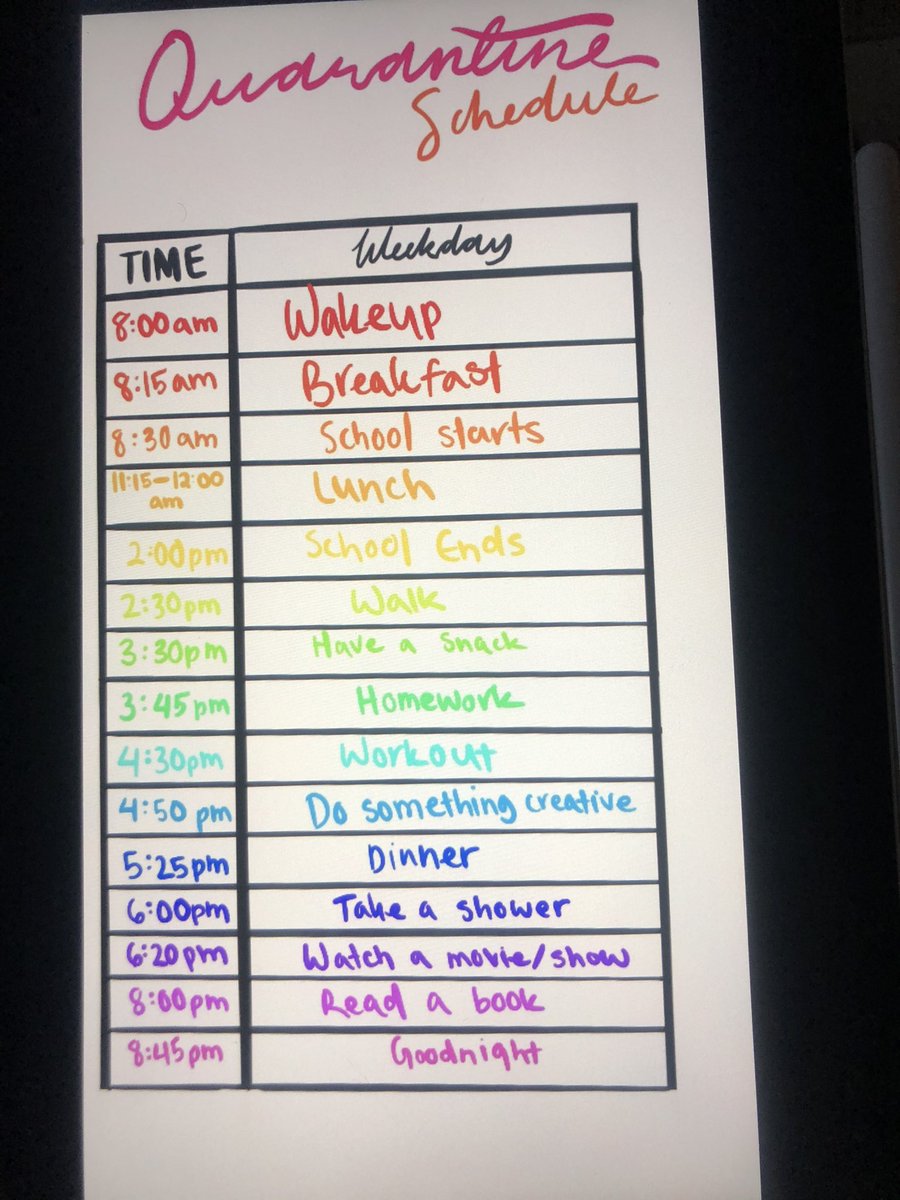 Quarantine
Schedule
TIME Weekday
8:00am Wakeup
8:15am Breakfast
8:30am School starts
11:15-12:00
am Lunch
2:00pm School Ends
2:30pm Walk
3:30pm Have a snack
3:45pm Homework
4:30pm Workout
4:50 pm Do something creative
5:25pm Dinner
6:00pm Take a shower
6:20pm Watch a movie/show
8:00pm Read a book
8:45pm Goodnight